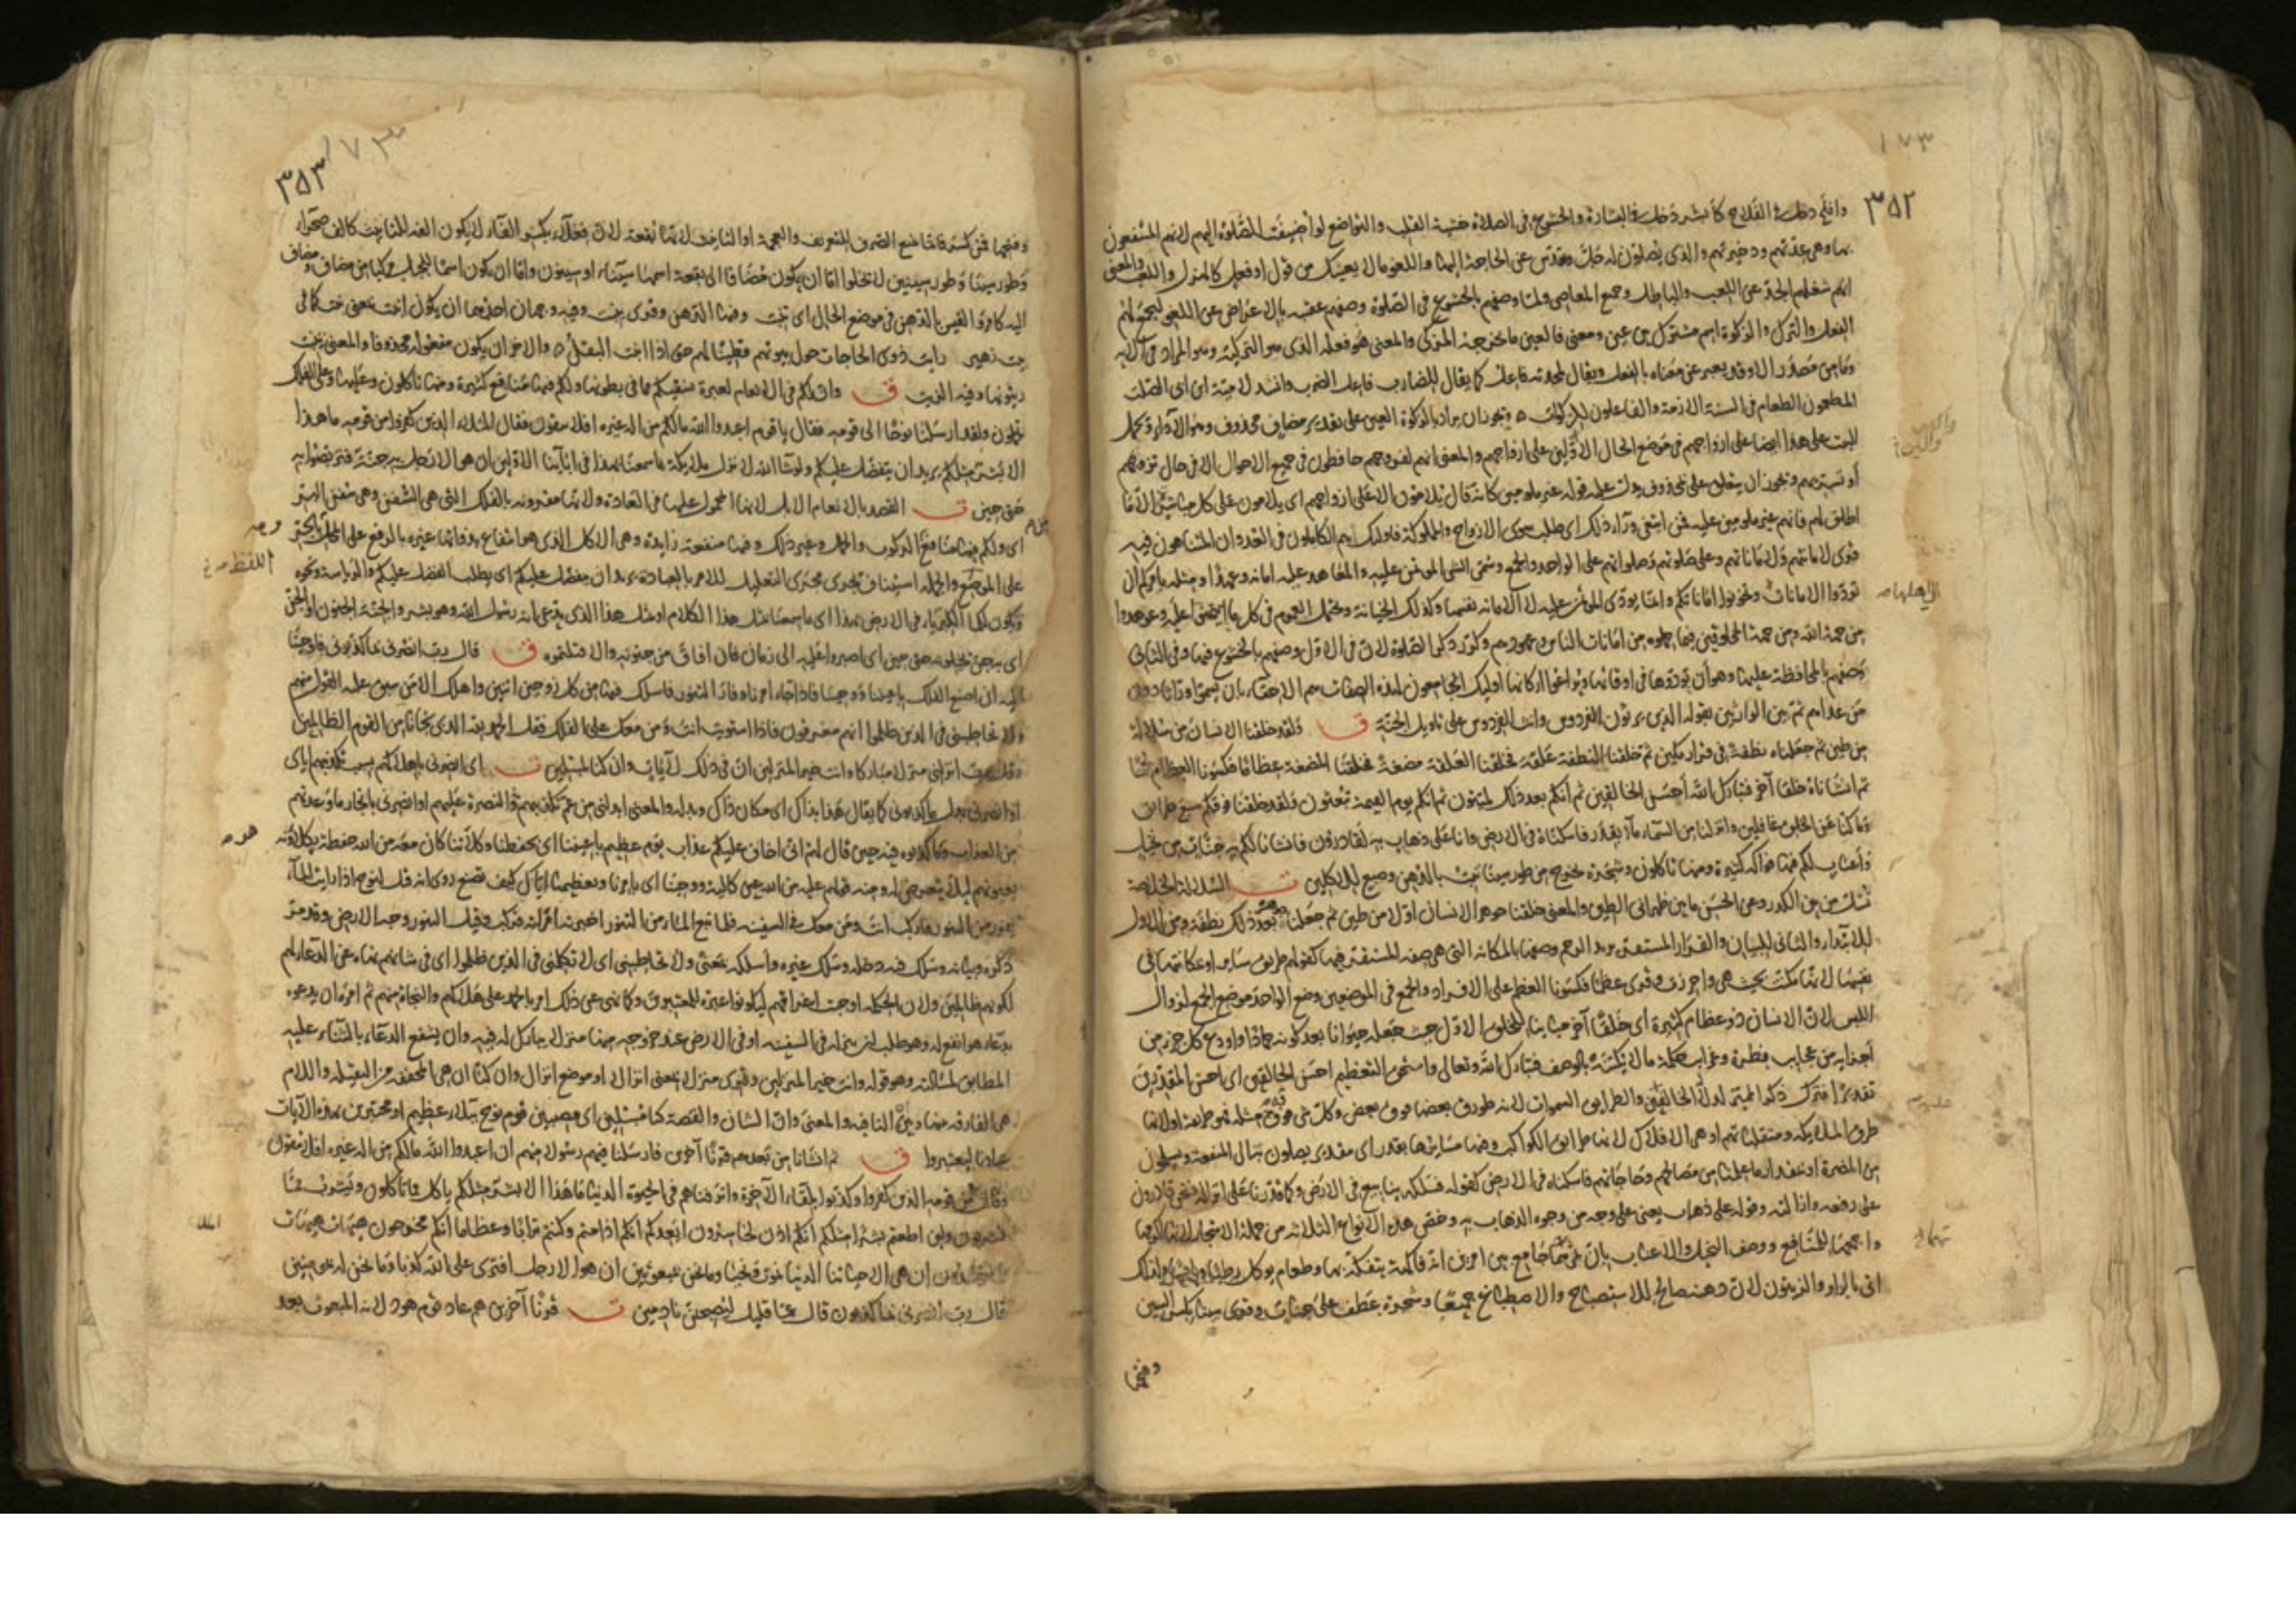 ١٧٣
٣٥٢
وافلح دخل في الفلاح كأبشر دخل في البشارة والخشوع في الصلاة خشية القلب والتواضع لو أضيفت الصلوة اليهم لانهم المنتفعون
بها وهي عدتهم وذخيرتهم والذي يصلون له جل وتقدس عن الحاجة اليها واللغو ما لا يعنيك من قول او فعل كالهزل واللعب والمعنى
انهم شغلهم الجد عن اللعب والباطل وجميع المعاصي ولما وصفهم بالخشوع في الصلوة وصفهم عقبه بالاعراض عن اللغو ليجمع لهم
الفعل والترك والزكوة اسم مشترك بين عين ومعنى فالعين ما يخرجه المزكي والمعنى هو فعله الذي هو التزكية وهو المراد في الاية
وما من مصدر الا وقد يعبر عن معناه بالفعل ويقال لمحدثه فاعل كما يقال للضارب فاعل الضرب وانشد لامية ابن ابي الصلت
المطعمون الطعام في السنة الازمة والفاعلون للزكوات ويجوز ان يراد بالزكوة العين على تقدير مضاف محذوف وهو الاداء ويحمل
البيت على هذا ايضا على ازواجهم في موضع الحال الا والين على ازواجهم والمعنى انهم لفروجهم حافظون في جميع الاحوال الا في حال تزوجهم
أو تسريهم ويجوز ان يتعلق على بمحذوف يدل عليه قوله غير ملومين كانه قال يلامون الا على ازواجهم اي يلامون على كل مباشر الا ما
اطلق لهم فانهم غير ملومين عليه فمن ابتغى وراء ذلك اي طلب سوى الازواج والمملوكة فاولئك هم الكاملون في العدوان المتناهون فيه
قرئ لامانتهم ولاماناتهم وعلى صلوتهم وصلواتهم على الواحد والجمع وسمى الشي المؤتمن عليه والمعاهد عليه امانه وعهدا ومثله يامركم ان
تؤدوا الامانات وتخونوا اماناتكم وانما يؤدى المؤتمن عليه لا الامانة نفسها وكذلك الخيانة ويحتمل العموم في كل ما ايتمنوا عليه وعوهدوا
من جهة الله ومن جهة المخلوقين فيما حملوه من امانات الناس وعهودهم وكرر ذكر الصلوة لان في الاول وصفهم بالخشوع فيها وفي الثاني
وصفهم بالمحافظة عليها وهو أن يؤدوها في اوقاتها ويراعوا اركانها اوليك الجامعون لهذه الصفات هم الاحقاء بان يسموا وراثا دون
من عداهم ثم بين الوارثين بقوله الذين يرثون الفردوس وانث الفردوس على تاويل الجنة ق ولقد خلقنا الانسان من سلالة
من طين ثم جعلناه نطفة في قرار مكين ثم خلقنا النطفة علقة فخلقنا العلقة مضغة فخلقنا المضغة عظاما فكسونا العظام لحما
ثم انشأناه خلقا آخر فتبارك الله أحسن الخالقين ثم انكم بعد ذلك لميتون ثم انكم يوم القيمة تبعثون ولقد خلقنا فوقكم سبع طرائق
وما كنا عن الخلق غافلين وانزلنا من السماء ماء بقدر فاسكناه في الارض وانا على ذهاب به لقادرون فانشانا لكم به جنات من نخيل
وأعناب لكم فيها فواكه كثيرة ومنها تاكلون وشجرة تخرج من طور سيناء تنبت بالدهن وصبغ للاكلين ت السلالة الخلاصة
تسل من بين الكدر وعن الحسن ما بين ظهراني الطين والمعنى خلقنا جوهر الانسان اولا من طين ثم جعلنا جوهره بعد ذلك نطفة ومن الاول
للابتداء والثاني للبيان والقرار المستقر يريد الرحم وصفها بالمكانه التي هي صفه المستقر فيها كقولهم طريق ساير او بمكانتها في
نفسها لانها مكنت بحيث هي واحرزت وقرئ عظما فكسونا العظم على الافراد والجمع في الموضعين وضع الواحد موضع الجمع لزوال
اللبس لان الانسان ذو عظام كثيرة اي خلقا آخر مباينا للخلق الاول حيث جعله حيوانا بعد كونه جمادا واودع كل جزء من
أجزايه من عجايب فطرة وغرايب حكمة ما لا يكتنه بالوصف فتبارك الله وتعالى واستحق التعظيم احسن الخالقين اي احسن المقدرين
تقديرا فترك ذكر المميز لدلالة الخالقين والطرايق السموات لانه طورق بعضها فوق بعض وكل شي فوقه مثله فهو طريقة او لانها
طرق الملايكة ومتقلباتهم او هي الافلاك لانها طرايق الكواكب وفيها مسايرها بقدر اي مقدر يصلون به الى المنفعة ويسلمون
من المضرة او بمقدار ما علمنا من مصالحهم وحاجاتهم فاسكناه في الارض كقوله فسلكه ينابيع في الارض وكما قدرنا على انزاله فنحن قادرون
على رفعه وازالته وقوله على ذهاب يعني على وجه من وجوه الذهاب به وخص هذه الانواع الثلاثه من جملة الاشجار لانها اكرمها
واجمعها للمنافع ووصف النخيل والاعناب بان ثمرهما جامع بين امرين انه فاكهة يتفكه بها وطعام يوكل رطبا ويابسا وكذلك
التي بالواو والزيتون لان دهنه صالح للاستصباح والاصطباغ جميعا وشجرة عطف على جنات وقرئ سيناء بكسر السين
وفتحها
١٧٣
٣٥٣
وفتحها فمن كسر فانما منع الصرف للتعريف والعجمة او التانيث لانها بقعة لان فعلاء بكسر الفاء لا يكون الفه للتانيث كالف صحراء
وطور سيناء وطور سينين لا يخلو اما ان يكون مضافا الى بقعة اسمها سيناء او سينون واما ان يكون اسما للجبل مركبا من مضاف ومضاف
اليه كامرؤ القيس بالدهن في موضع الحال اي تنبت وفيها الدهن وقرئ تنبت وفيه وجهان احدهما ان يكون انبت بمعنى نبت كما في
بيت زهير رايت ذوي الحاجات حول بيوتهم قطينا لهم حتى اذا انبت البقل والاخر ان يكون مفعوله محذوفا والمعنى تنبت
زيتونها وفيه الزيت ق وان لكم في الانعام لعبرة نسقيكم مما في بطونها ولكم فيها منافع كثيرة ومنها تاكلون وعليها وعلى الفلك
تحملون ولقد ارسلنا نوحا الى قومه فقال يا قوم اعبدوا الله ما لكم من اله غيره افلا تتقون فقال الملاء الذين كفروا من قومه ما هذا
الا بشر مثلكم يريد ان يتفضل عليكم ولو شاء الله لانزل ملايكة ما سمعنا بهذا في ابآئنا الاولين ان هو الا رجل به جنة فتربصوا به
حتى حين ت القصد بالانعام الابل لانها المحمول عليها في العادة ولانها مقرونه بالفلك التي هي السفن وهي سفن البر
اي ولكم فيها منافع الركوب والحمل وغير ذلك وفيها منفعة زايدة وهي الاكل الذي هو انتفاع بذواتها غيره بالرفع على المحل وبالجر
على الموضع والجملة استيناف تجري مجرى التعليل للامر بالعبادة يريد ان يتفضل عليكم اي يطلب الفضل عليكم والرياسة ونحوه
وتكون لكما الكبرياء في الارض بهذا اي ما سمعنا بمثل هذا الكلام او مثل هذا الذي يدعي انه رسول الله وهو بشر والجنة الجنون او الجن
اي به جن يخبلونه حتى حين اي اصبروا عليه الى زمان فان افاق من جنونه والا قتلتموه ق قال رب انصرني بما كذبون فاوحينا
اليه ان اصنع الفلك باعيننا ووحينا فاذا جاء امرنا وفار التنور فاسلك فيها من كل زوجين اثنين واهلك الا من سبق عليه القول منهم
ولا تخاطبني في الذين ظلموا انهم مغرقون فاذا استويت انت ومن معك على الفلك فقل الحمد لله الذي نجانا من القوم الظالمين
وقل رب انزلني منزلا مباركا وانت خير المنزلين ان في ذلك لآيات وان كنا لمبتلين ت اي انصرني باهلاكهم بسبب تكذيبهم اياي
او انصرني بدل ما كذبوني كما يقال هذا بذاك اي مكان ذاك وبدله والمعنى ابدلني من غم تكذيبهم النصرة عليهم او انصرني بانجاز ما وعدتهم
من العذاب وما كذبوه فيه حين قال لهم اني اخاف عليكم عذاب يوم عظيم باعيننا اي بحفظنا وكلائتنا كان معه من الله حفظة يكلأونه
بعيونهم ليلا يتعرض له ومنه قولهم عليه من الله عين كالية ووحينا اي بامرنا وتعليمنا اياك كيف تصنع روي انه قيل لنوح اذا رايت الماء
يفور من التنور فاركب انت ومن معك في السفينه فلما نبع الماء من التنور اخبرته امراته فركب وقيل التنور وجه الارض وقد مر
ذكره وبيانه وسلك فيه دخله وسلك غيره وأسلكه بمعنى ولا تخاطبني اي لا تكلمني في الذين ظلموا اي في شانهم نهاه عن الدعاء لهم
لكونهم ظالمين ولان الحكمة اوجبت اغراقهم ليكونوا عبرة للمعتبرين وكما نهى عن ذلك امر بالحمد على هلاكهم والنجاة منهم ثم امره ان يدعوه
بدعاء هو انفع له وهو طلب ان ينزله في السفينه او في الارض عند خروجه منها منزلا يبارك له فيه وان يشفع الدعاء بالثناء عليه
المطابق لمسئلته وهو قوله وانت خير المنزلين وقرئ منزلا بمعنى انزالا او موضع انزال وان كنا ان هي المخففه من الثقيله واللام
هي الفارقه بينها وبين النافيه والمعنى وان الشان والقصة كنا مبتلين اي مصيبين قوم نوح ببلاء عظيم او مختبرين بهذه الآيات
عبادنا ليعتبروا ق ثم انشانا من بعدهم قرنا آخرين فارسلنا فيهم رسولا منهم ان اعبدوا الله ما لكم من اله غيره افلا تتقون
وقال الملأ من قومه الذين كفروا وكذبوا بلقاء الآخرة واترفناهم في الحيوة الدنيا ما هذا الا بشر مثلكم ياكل مما تاكلون ويشرب مما
تشربون ولين اطعتم بشرا مثلكم انكم اذن لخاسرون ايعدكم انكم اذا متم وكنتم ترابا وعظاما انكم مخرجون هيهات هيهات
لما توعدون ان هي الا حياتنا الدنيا نموت ونحيا وما نحن بمبعوثين ان هو الا رجل افترى على الله كذبا وما نحن له بمومنين
قال رب انصرني بما كذبون قال عما قليل ليصبحن نادمين ت قرنا آخرين هم عاد قوم هود لانه المبعوث بعد